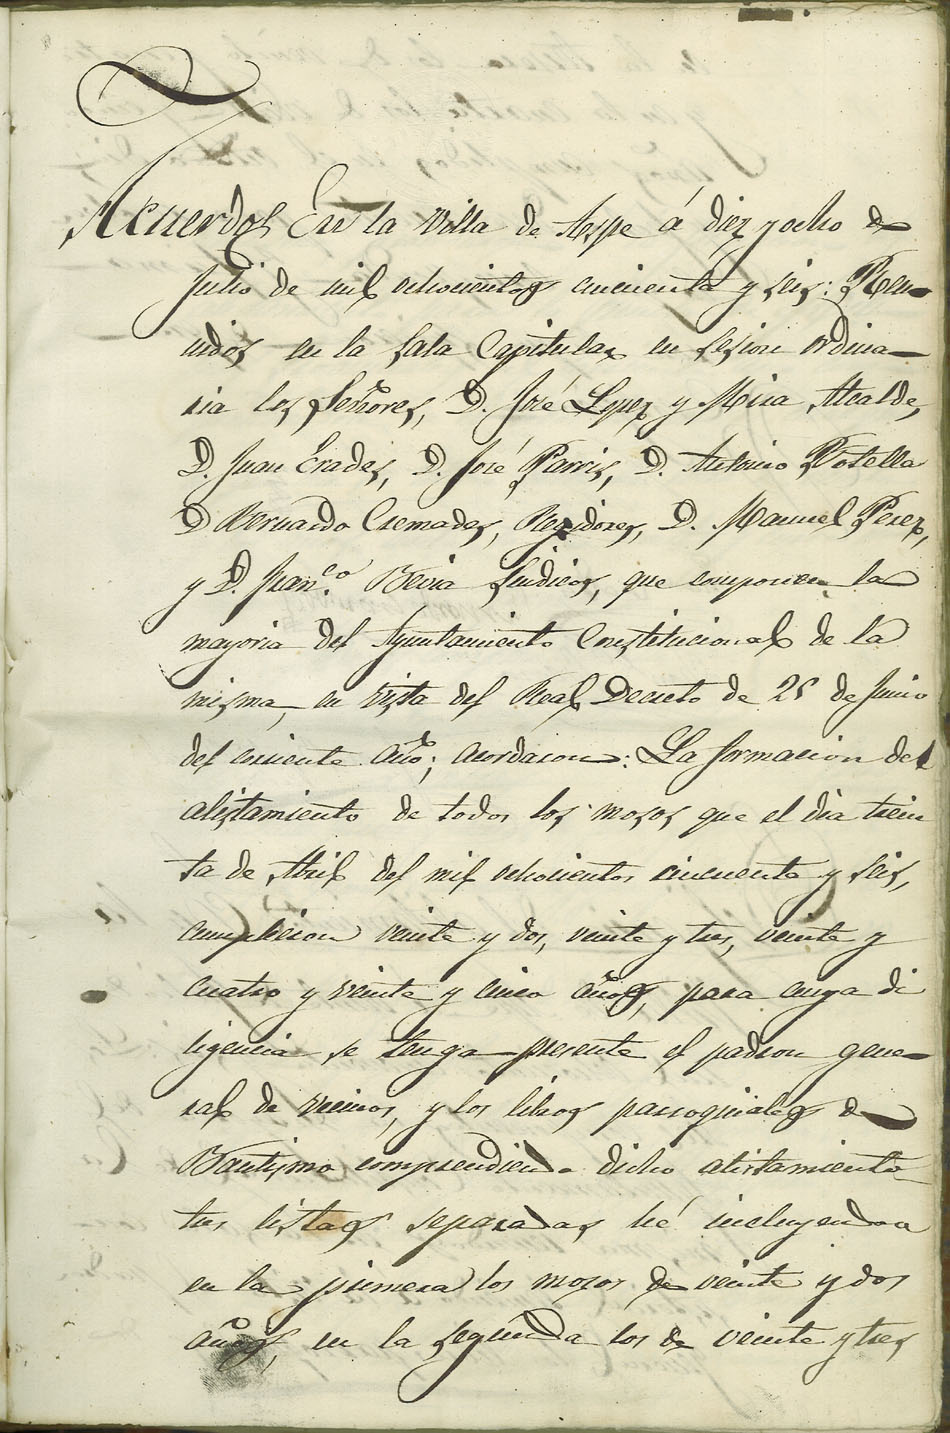 Acuerdos En la Villa de Aspe á diez y ocho de
Julio de mil ochocientos cincuenta y seis: Reu-
nidos en la Sala Capitular en sesion ordina-
ria los Señores, D. José Lopez y Mira, Alcalde,
D. Juan Erades, D. José Parris, D. Antonio Botella
D Bernardo Cremades, Regidores, D. Manuel Perez,
y D. Fran.co Beira Sindicos, que componen la
mayoria del Ayuntamiento Constitucional de la
misma, en vista del Real Decreto de 25 de Junio
del corriente año; acordaron: La formacion del
alistamiento de todos los mosos que el dia trein
ta de Abril del mil ochocientos cincuenta y seis,
cumplieron veinte y dos, veinte y tres, veinte y
cuatro y veinte y cinco años, para cuya di
ligencia se tenga presente el padron gene-
ral de vecinos, y los libros parroquiales de
Bautismo comprendiendo dicho alistamiento
tres listas separadas hé incluyendo
en la primera los mozos de veinte y dos
años, en la segunda los de veinte y tres